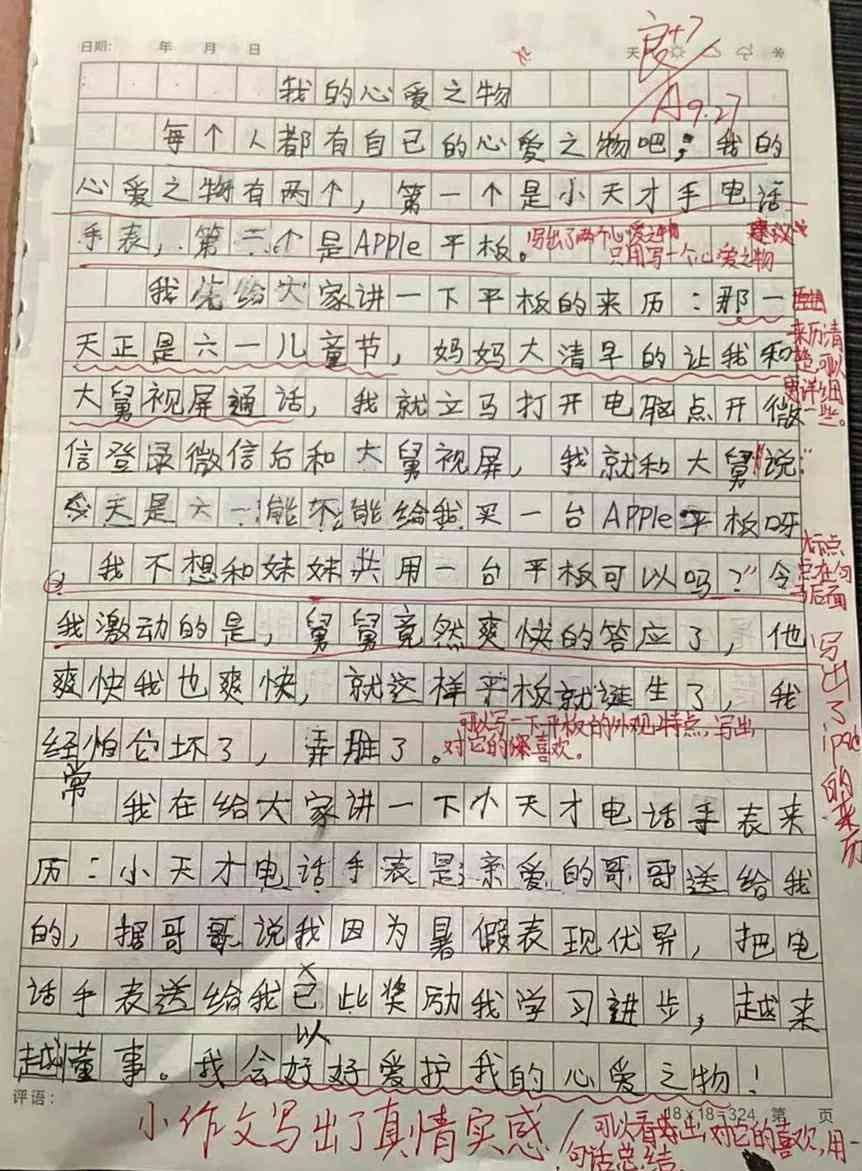 日期: 年 月 日
天
良+7
A 9.27
我的心爱之物
每个人都有自己的心爱之物吧;我的
心爱之物有两个,第一个是小天才手电话
手表,第二个是APPle平板。
写出了两个心爱之物
建议
只用写一个心爱之物
我先给大家讲一下平板的来历:那一
天正是六一儿童节,妈妈大清早的让我和
来历清
楚,可以
写详细
一些。
大舅视屏通话,我就立马打开电脑点开微
信登录微信后和大舅视屏,我就和大舅说:“
今天是六一能不能给我买一台APPle平板呀
我不想和妹妹共用一台平板可以吗?”令
标点
点在句
子后面
我激动的是,舅舅竟然爽快的答应了,他
爽快我也爽快,就这样平板就诞生了,我
经常怕它坏了,弄脏了。
可以写一下平板的外观、特点,写出
对它的深喜欢。
写出了ipad的来历
我在给大家讲一下小天才电话手表来
历:小天才电话手表是亲爱的哥哥送给我
的,据哥哥说我因为暑假表现优异,把电
话手表送给我已此奖励我学习进步,越来
以
越懂事。我会好好爱护我的心爱之物!
评语:
18×18=324 第 页
小作文写出了真情实感
可以看出对它的喜欢,用一
句话总结